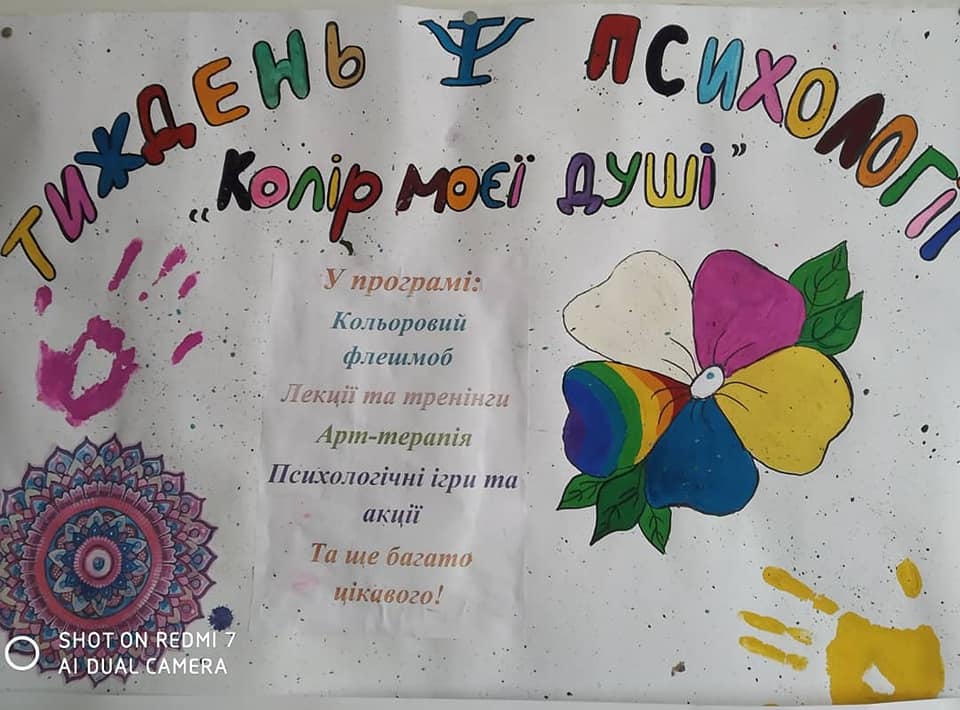 ТИЖДЕНЬ Ψ ПСИХОЛОГІЇ
„Колір моєї душі”
У програмі:
Кольоровий
флешмоб
Лекції та тренінги
Арт-терапія
Психологічні ігри та
акції
Та ще багато
цікавого!
SHOT ON REDMI 7
AI DUAL CAMERA